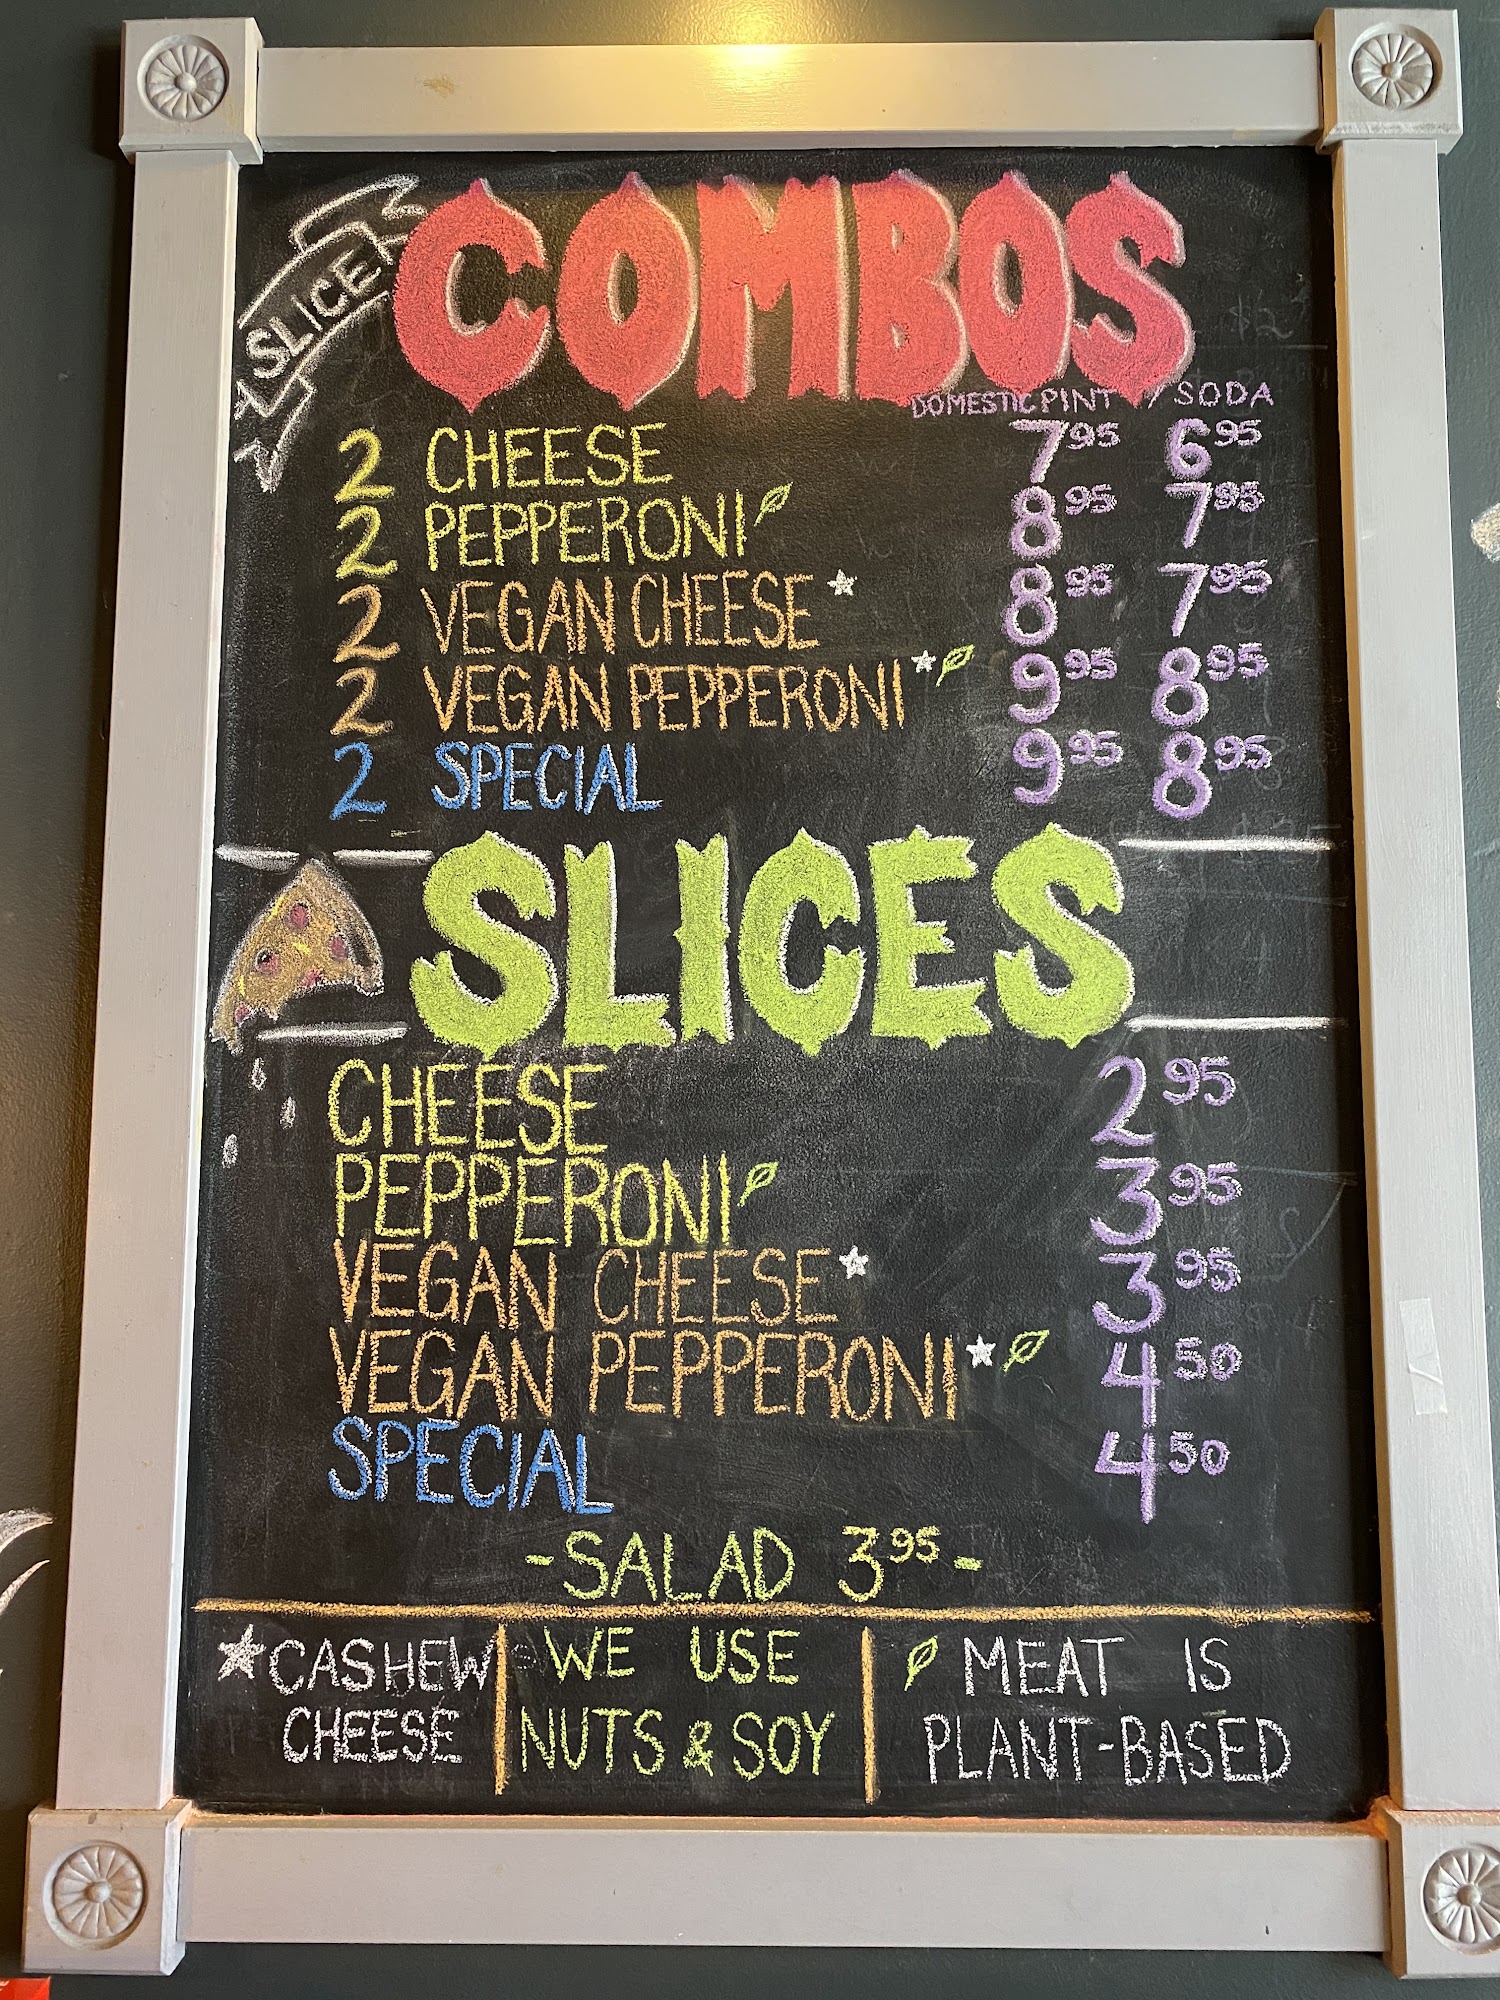 SLICE
COMBOS
DOMESTIC PINT / SODA
2 CHEESE 7.95 6.95
2 PEPPERONI 8.95 7.95
2 VEGAN CHEESE* 8.95 7.95
2 VEGAN PEPPERONI* 9.95 8.95
2 SPECIAL 9.95 8.95
SLICES
CHEESE 2.95
PEPPERONI 3.95
VEGAN CHEESE* 3.95
VEGAN PEPPERONI* 4.50
SPECIAL 4.50
-SALAD 3.95-
*CASHEW
CHEESE
WE USE
NUTS & SOY
MEAT IS
PLANT-BASED